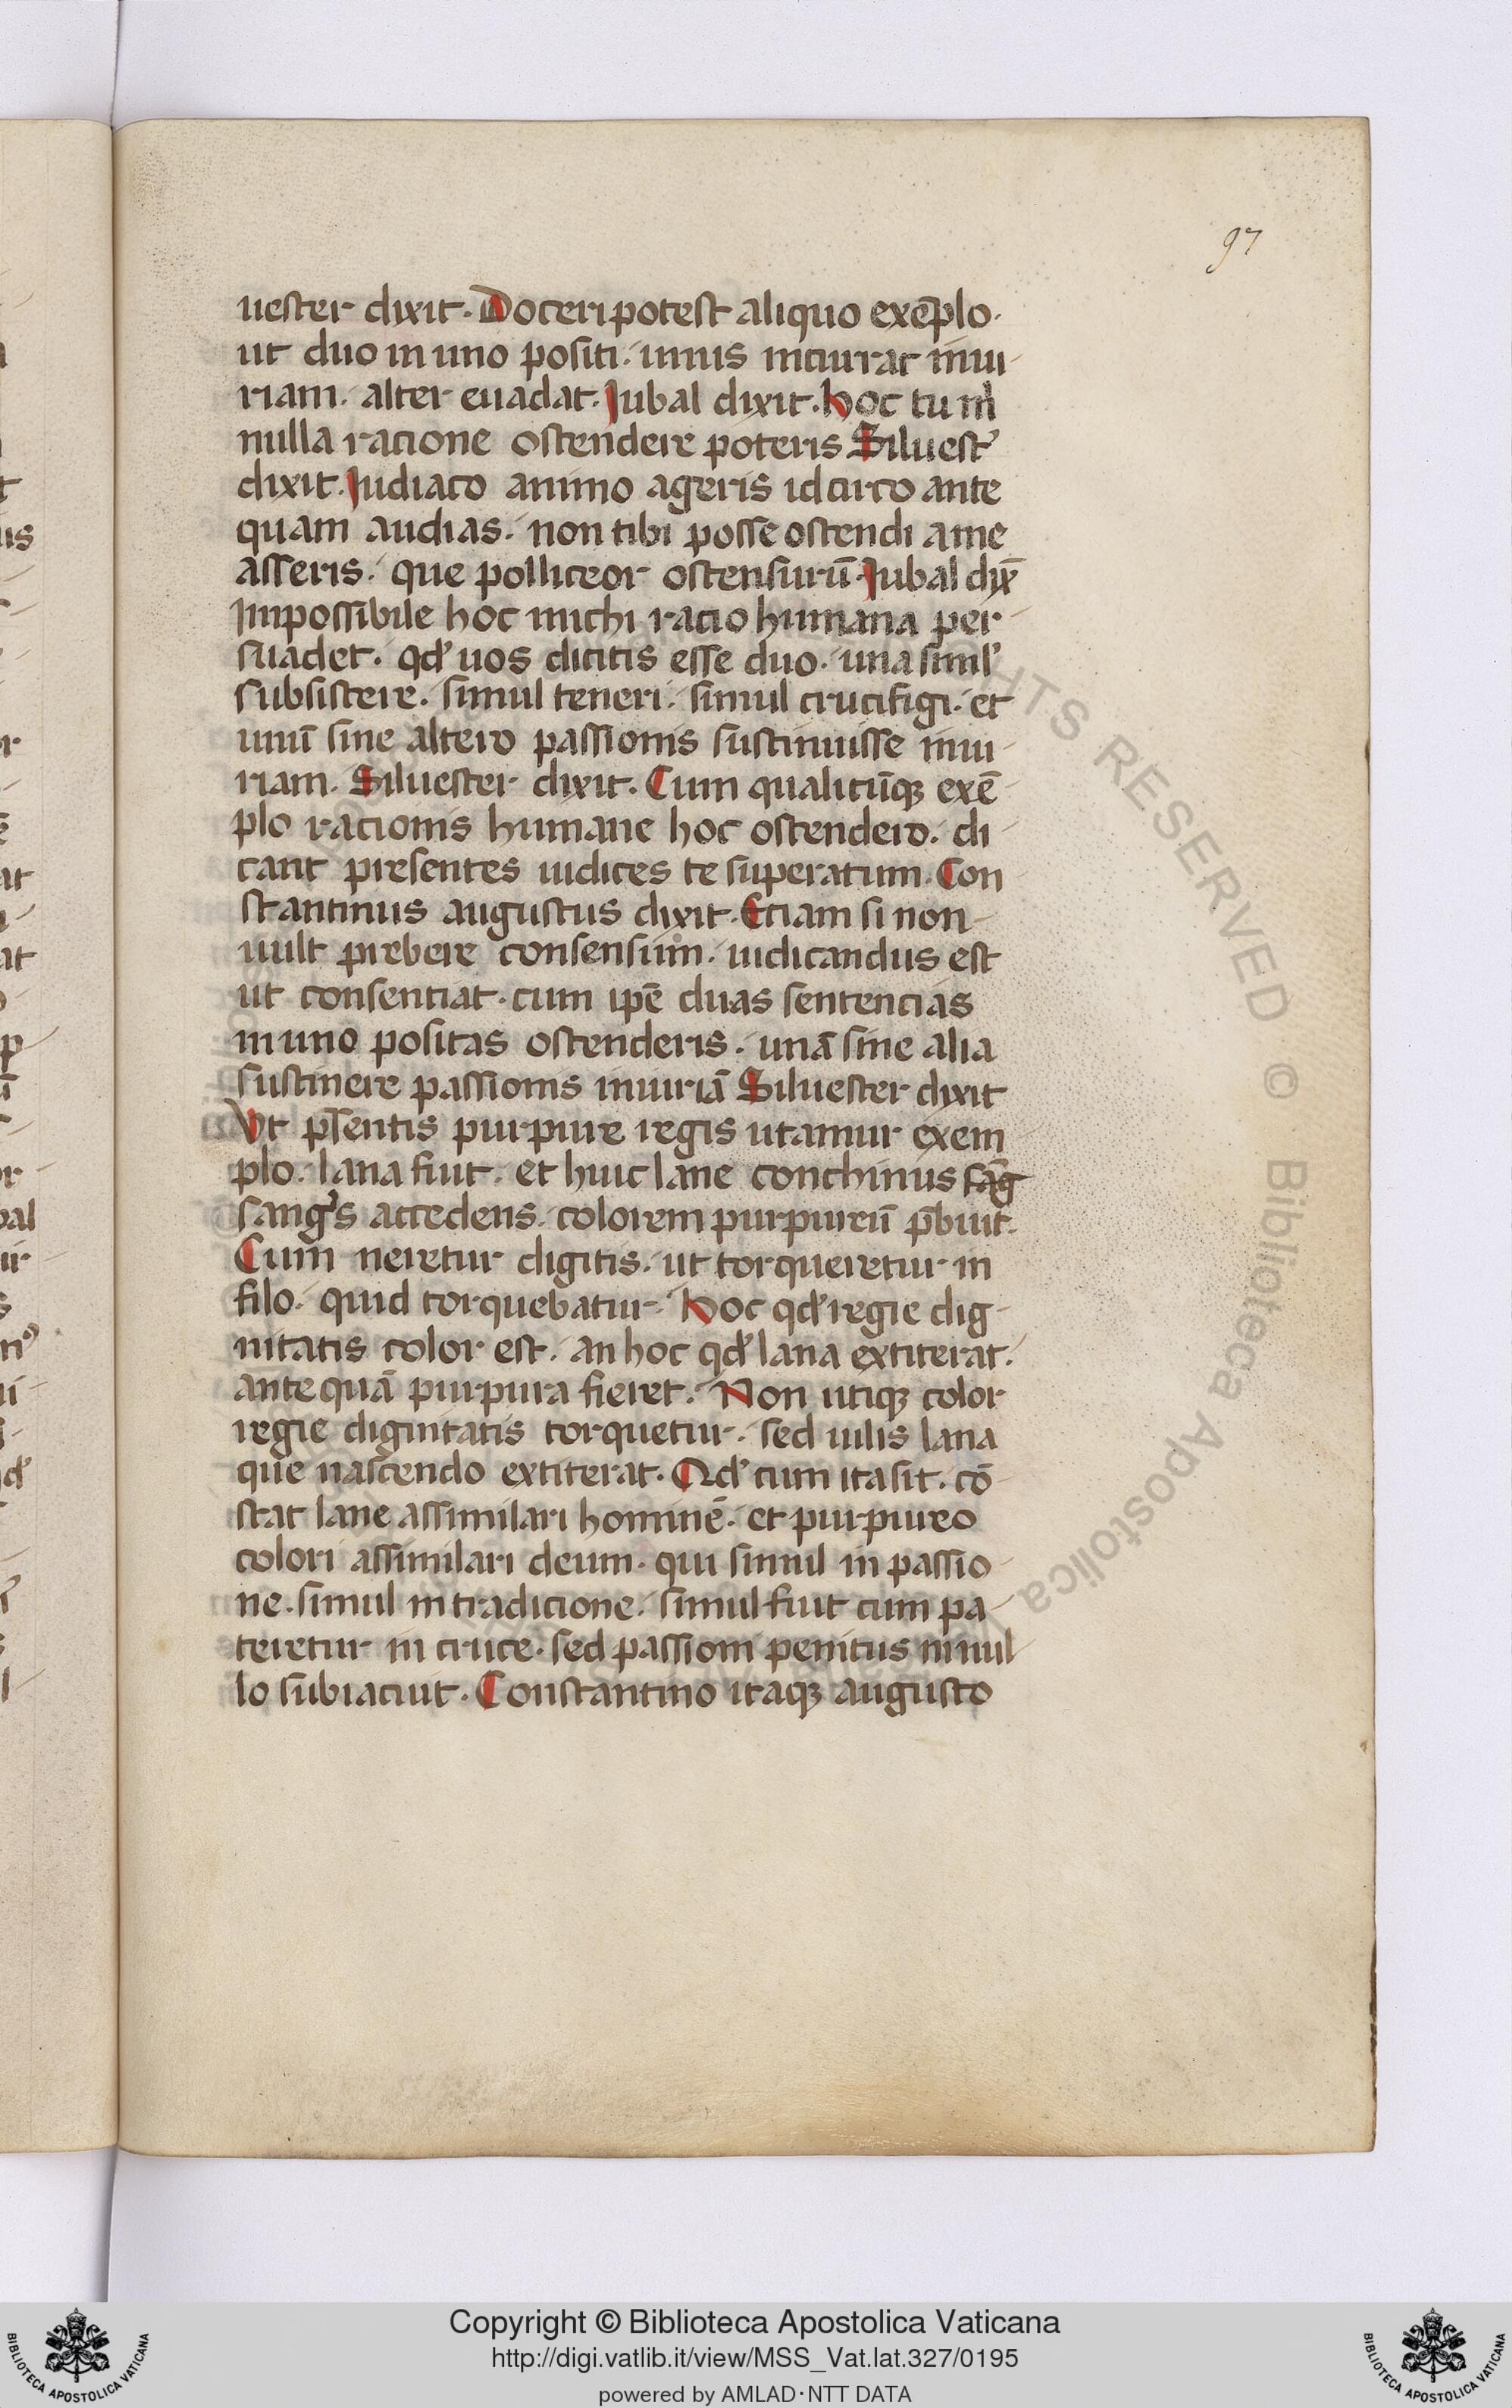 97
uester dixit. Doceri potest aliquo exēplo.
ut duo in uno positi. unus incurrat iniu
riam. alter euadat. Jubal dixit. hoc tu m̄
nulla racione ostendere poteris Siluest᷑
dixit. Judiaco animo ageris idcirco ante
quam audias. non tibi posse ostendi a me
asseris. que polliceor ostensurū. Jubal dix̄
Impossibile hoc michi racio humana per
suadet. qd̛ uos dicitis esse duo. una simil̛
subsistere. simul teneri. simul crucifigi. et
unū sine altero passionis sustinuisse iniu
riam. Siluester dixit. Cum qualicūqꝫ exē
plo racionis humane hoc ostendero. di
cant presentes iudices te superatum. Con
stantinus augustus dixit. Etiam si non
uult prebere consensum. iudicandus est
ut consentiat. cum ipē duas sentencias
in uno positas ostenderis. unā sine alia
sustinere passionis iniuriā Siluester dixit
Vt p̄sentis purpure regis utamur exem
plo. lana fuit. et huic lane conchinus sāg
sang̛s accedens. colorem purpureū p̄buit.
Cum neretur digitis. ut torqueretur in
filo. quid torquebatur. hoc qd̛ regie dig
nitatis color est. an hoc qd̛ lana extiterat.
antequā purpura fieret. Non utiqꝫ color
regie dignitatis torquetur. sed uilis lana
que nascendo extiterat. Qd̛ cum ita sit. cō
stat lane assimilari hominē. et purpureo
colori assimilari deum. qui simul in passio
ne. simul in tradicione. simul fuit cum pa
teretur in cruce. sed passioni penitus in nul
lo subiacuit. Constantino itaqꝫ augusto
RIGHTS RESERVED © Biblioteca Apostolica
Copyright © Biblioteca Apostolica Vaticana
http://digi.vatlib.it/view/MSS_Vat.lat.327/0195
powered by AMLAD·NTT DATA
BIBLIOTECA APOSTOLICA VATICANA
BIBLIOTECA APOSTOLICA VATICANA